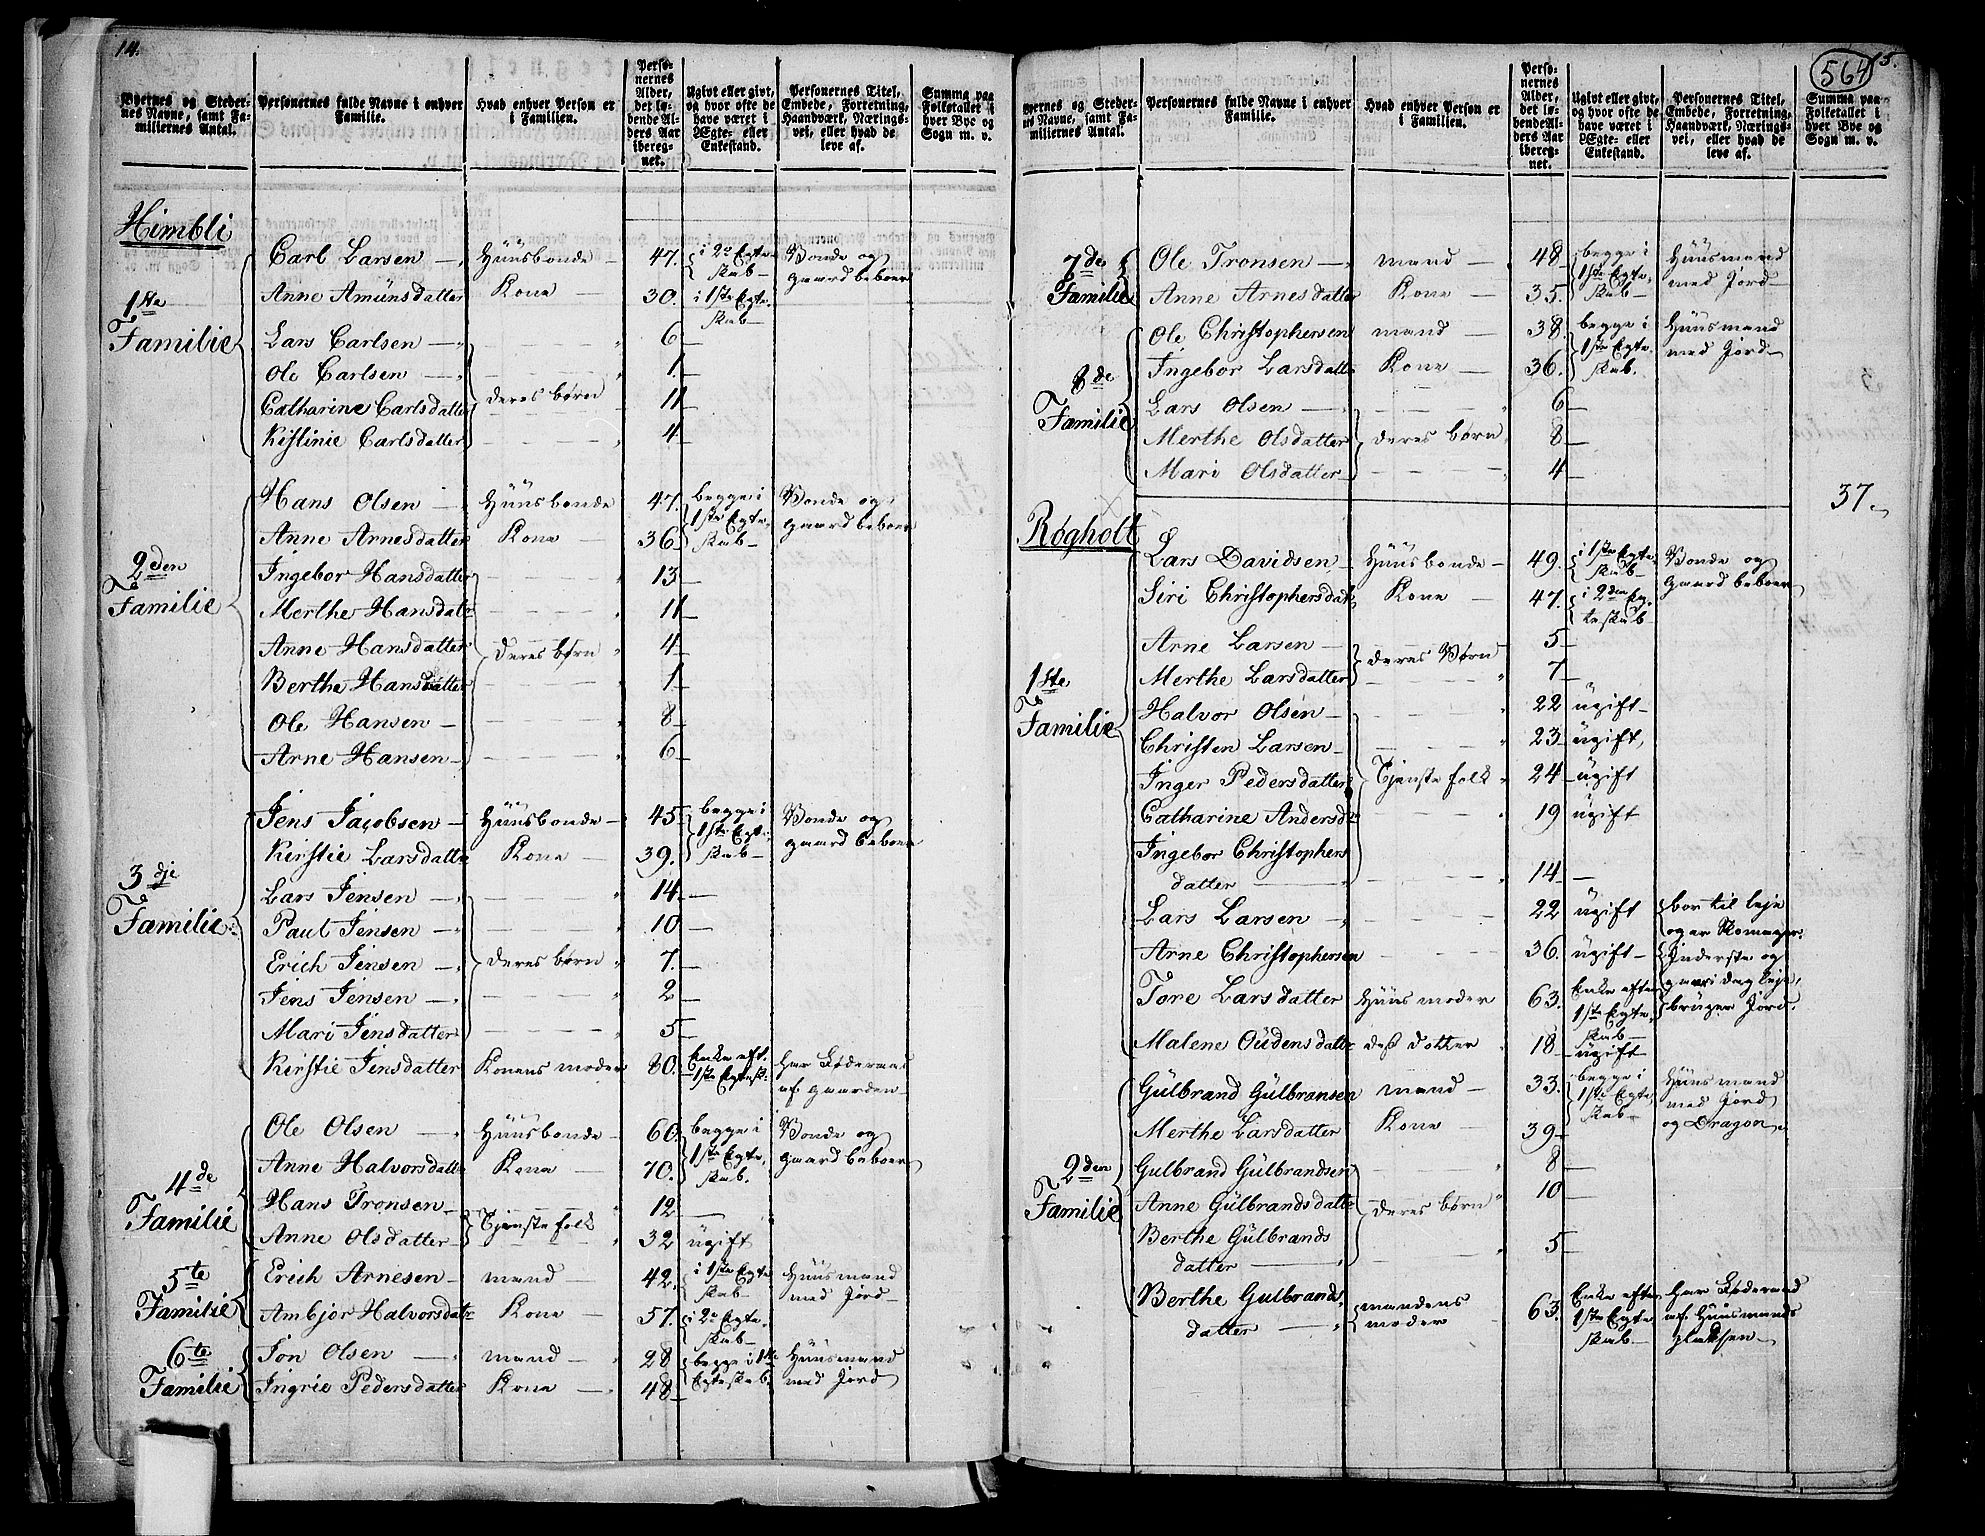 14.
Byernes og Steder-
nes Navne, samt Fa-
miliernes Antal.
Personernes fulde Navne i enhver
Familie.
Hvad enhver Person er
i Familien.
Perso-
nernes
Alder,
det lø-
bende Al-
ders Aar
ibereg-
net.
Ugivt eller givt,
og hvor ofte de
have været i
Ægte- eller
Enkestand.
Personernes Titel,
Embede, Forretning,
Haandværk, Nærings-
vei, eller hvad de
leve af.
Summa paa
Folketallet i
hver Bye og
Sogn m. v.
Himbli
1ste
Familie
Carl Larsen — Huusbonde — 47. i 2de Egte-
skab — Bonde og
gaardbeboer
Anne Amunsdatter Kone — 30. i 1ste Egte-
skab —
Lars Carlsen — 6 —
Ole Carlsen — 1 —
Catharine Carlsdatter deres børn 11 —
Kistinie Carlsdatter 4 —
2den
Familie
Hans Olsen — Huusbonde 47. begge i
1ste Egte-
skab — Bonde og
gaardbeboer
Anne Arnesdatter Kone — 36 —
Ingebor Hansdatter 13 —
Merthe Hansdatr 11 —
Anne Hansdatter deres børn 4 —
Berthe Hansdatter 1 —
Ole Hansen — 8 —
Arne Hansen — 6 —
3dje
Familie
Jens Jacobsen — Huusbonde — 45 begge i
1ste Egte-
skab — Bonde og
gaardbeboer
Kirstie Larsdatter Kone — 39.
Lars Jensen — 14 —
Paul Jensen — 10 —
Erich Jensen — deres børn 7. —
Jens Jensen — 2 —
Mari Jensdatter 5 —
Kirstie Jensdatter Konens moder 80. Enke eft.
1ste Egtesk. har Føderaad
af gaarden —
4de
Familie
Ole Olsen — Huusbonde — 60. begge i
1ste Egte-
skab. Bonde og
gaardbeboer
Anne Halvorsdatter Kone — 70.
Hans Tronsen — 12 —
Anne Olsdatter — Tjenstefolk 32 ugift
5te
Familie
Erich Arnesen — mand — 42. i 1ste Egte-
skab — Huusmand
med Jord —
Ambjor Halvorsdatr Kone — 57. i 2de Egte-
skab —
6te
Familie
Jon Olsen — mand — 28 begge i 1ste
Egteskab. Huusmand
med Jord
Ingrie Pedersdatter Kone — 48 —
564
15.
Byernes og Steder-
nes Navne, samt Fa-
miliernes Antal.
Personernes fulde Navne i enhver
Familie.
Hvad enhver Person er
i Familien.
Perso-
nernes
Alder,
det lø-
bende Al-
ders Aar
ibereg-
net.
Ugivt eller givt,
og hvor ofte de
have været i
Ægte- eller
Enkestand.
Personernes Titel,
Embede, Forretning,
Haandværk, Nærings-
vei, eller hvad de
leve af.
Summa paa
Folketallet i
hver Bye og
Sogn m. v.
7de
Familie
Ole Tronsen — mand — 48 begge i
1ste Egte-
skab — Huusmand
med Jord —
Anne Arnesdatter Kone — 35.
8de
Familie
Ole Christophersen mand — 38 begge i
1ste Egte-
skab. Huusmand
med Jord —
Ingebor Larsdatter Kone — 36.
Lars Olsen — 6 —
Merthe Olsdatter deres børn 8 —
Mari Olsdatter 4 —
37.
Røgholt
1ste
Familie
Lars Davidsen — Huusbonde — 49. i 1ste Egte-
skab — Bonde og
gaardbeboer
Siri Christophersdatr Kone — 47. i 2den Eg-
teskab —
Arne Larsen — 5 —
Merthe Larsdatter deres Børn 7 —
Halvor Olsen — 22 ugift —
Christen Larsen — 23 ugift
Inger Pedersdatter Tjenstefolk 24 ugift
Catharine Andersdr 19 ugift
Ingebor Christophers
datter — 14 —
Lars Larsen — 22 ugift bor til leje
og er Skomager.
Arne Christophersen 36. ugift — Inderste og
gaar i dagleje,
Tore Larsdatter Huusmoder 63. Enke efter
1ste Egte-
skab — bruger Jord.
Malene Oudensdatr deß datter 18 ugift
2den
Familie
Gulbrand Gulbransen mand — 33. begge i
1ste Egte-
skab — Huusmand
med Jord
og Dragon.
Merthe Larsdatter Kone — 39 —
Gulbrand Gulbrandsen 8 —
Anne Gulbrandsdatr deres børn 10 —
Berthe Gulbrands
datter — 5 —
Berthe Gulbrands-
datter — mandens
moder 63. Enke efter
1ste Egte-
skab — har Føderaad
af Huusmands
pladsen —